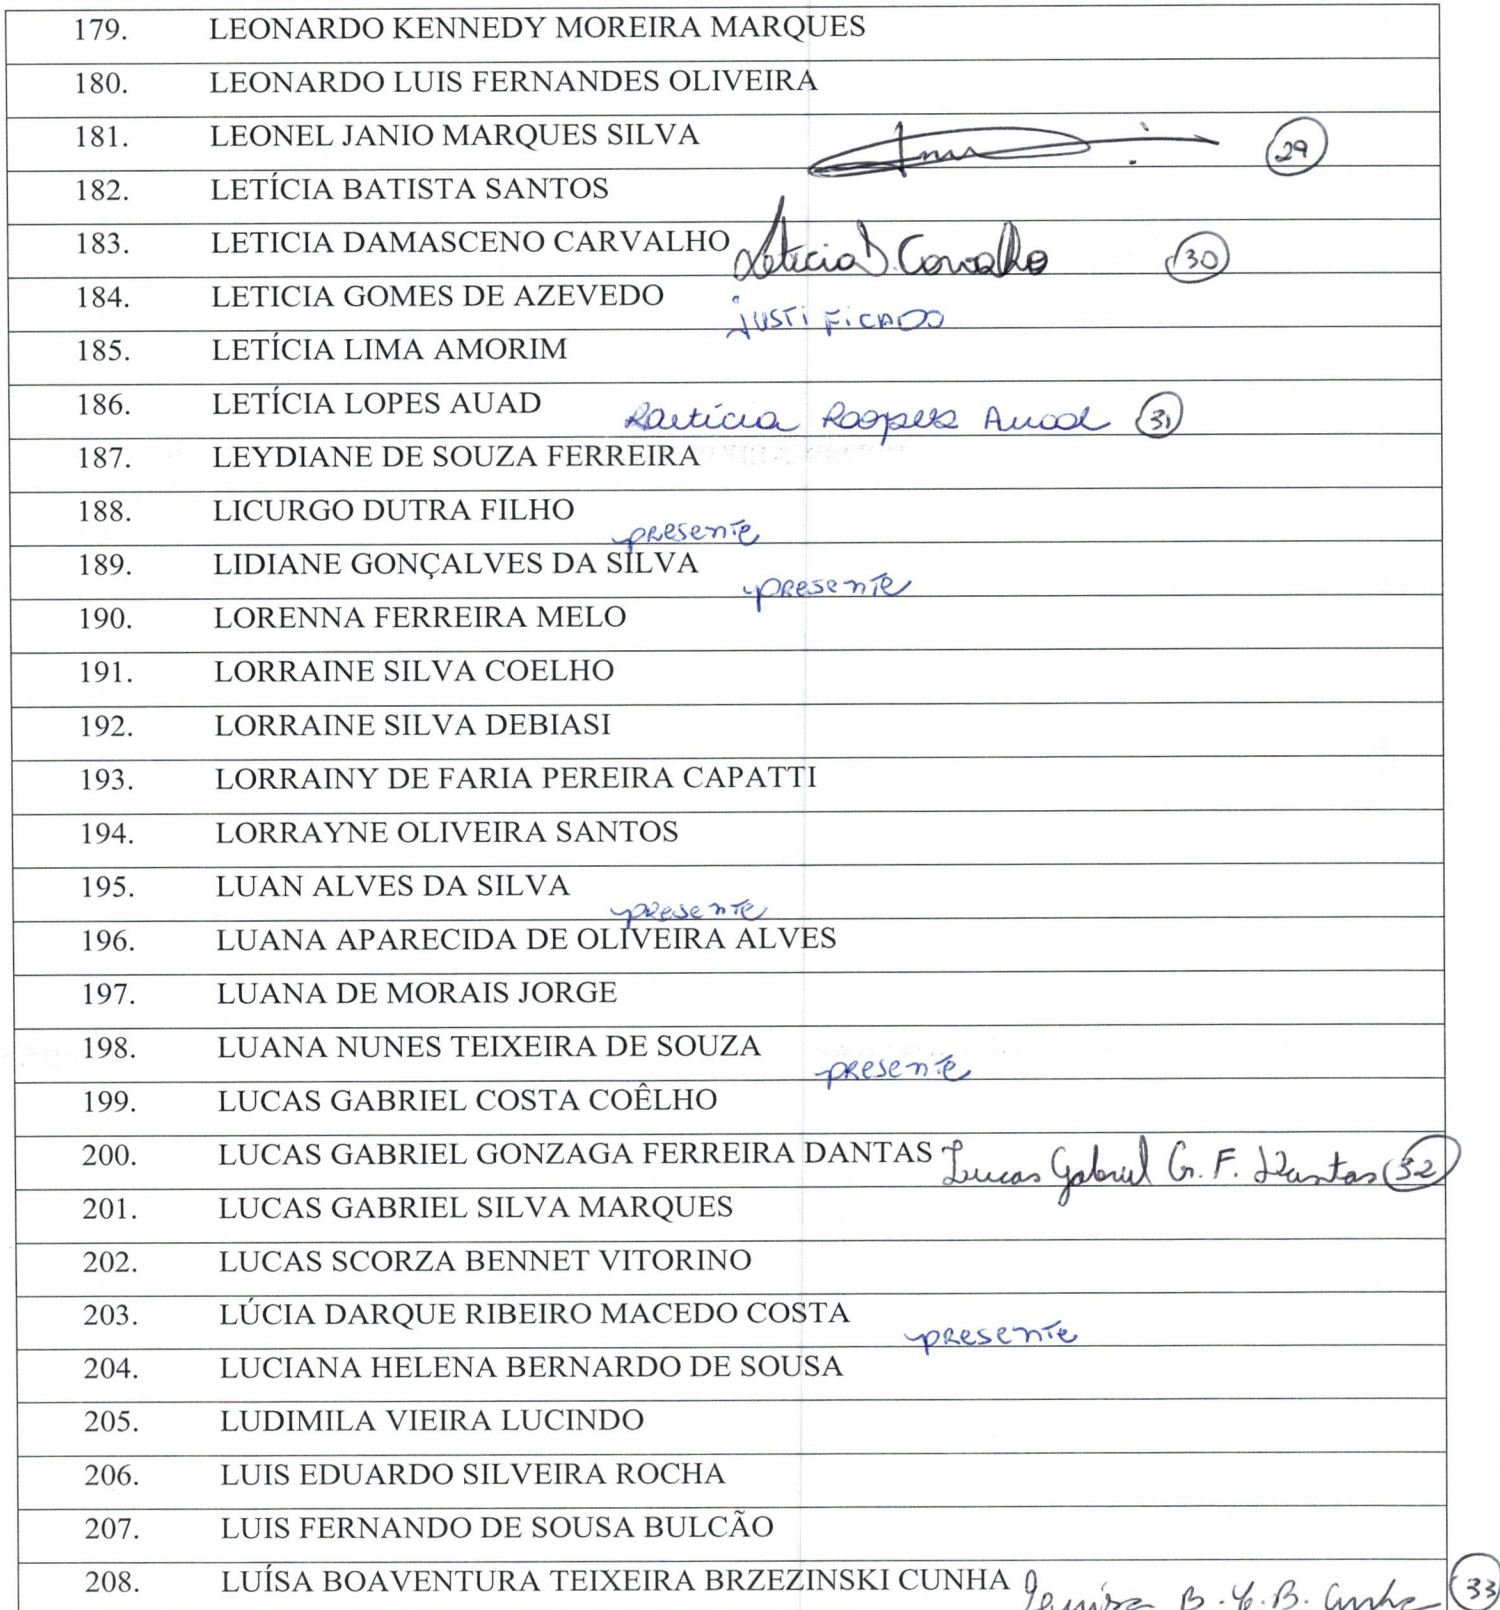 179. LEONARDO KENNEDY MOREIRA MARQUES
180. LEONARDO LUIS FERNANDES OLIVEIRA
181. LEONEL JANIO MARQUES SILVA 29
182. LETÍCIA BATISTA SANTOS
183. LETICIA DAMASCENO CARVALHO Leticia D. Carvalho 30
184. LETICIA GOMES DE AZEVEDO justificado
185. LETÍCIA LIMA AMORIM
186. LETÍCIA LOPES AUAD Letícia Lopes Auad 31
187. LEYDIANE DE SOUZA FERREIRA
188. LICURGO DUTRA FILHO presente
189. LIDIANE GONÇALVES DA SILVA presente
190. LORENNA FERREIRA MELO
191. LORRAINE SILVA COELHO
192. LORRAINE SILVA DEBIASI
193. LORRAINY DE FARIA PEREIRA CAPATTI
194. LORRAYNE OLIVEIRA SANTOS
195. LUAN ALVES DA SILVA presente
196. LUANA APARECIDA DE OLIVEIRA ALVES
197. LUANA DE MORAIS JORGE
198. LUANA NUNES TEIXEIRA DE SOUZA presente
199. LUCAS GABRIEL COSTA COÊLHO
200. LUCAS GABRIEL GONZAGA FERREIRA DANTAS Lucas Gabriel G. F. Dantas 32
201. LUCAS GABRIEL SILVA MARQUES
202. LUCAS SCORZA BENNET VITORINO
203. LÚCIA DARQUE RIBEIRO MACEDO COSTA presente
204. LUCIANA HELENA BERNARDO DE SOUSA
205. LUDIMILA VIEIRA LUCINDO
206. LUIS EDUARDO SILVEIRA ROCHA
207. LUIS FERNANDO DE SOUSA BULCÃO
208. LUÍSA BOAVENTURA TEIXEIRA BRZEZINSKI CUNHA Luísa B. T. B. Cunha 33